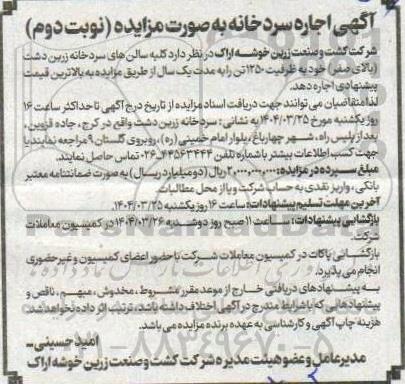 آگهی اجاره سردخانه به صورت مزایده (نوبت دوم)
شرکت کشت و صنعت زرین خوشه اراک در نظر دارد کلیه سالن های سردخانه زرین دشت
(بالای صفر) خود به ظرفیت ۱۲۵۰ تن را به مدت یک سال از طریق مزایده به بالاترین قیمت
پیشنهادی اجاره دهد.
لذا متقاضیان می توانند جهت دریافت اسناد مزایده از تاریخ درج آگهی تا حداکثر ساعت ۱۶
روز یکشنبه مورخ ۱۴۰۴/۰۳/۲۵ به نشانی: سردخانه زرین دشت واقع در کرج، جاده قزوین،
بعد از پلیس راه، شهر چهارباغ، بلوار امام خمینی (ره)، روبروی گلستان ۹ مراجعه نمایند یا
جهت کسب اطلاعات بیشتر با شماره تلفن ۴۴۵۶۳۴۴۳-۰۲۶ تماس حاصل نمایند.
مبلغ سپرده در مزایده: ۲,۰۰۰,۰۰۰,۰۰۰ ریال (دو میلیارد ریال) به صورت ضمانتنامه معتبر
بانکی، واریز نقدی به حساب شرکت و یا از محل مطالبات.
آخرین مهلت تسلیم پیشنهادات: ساعت ۱۶ روز یکشنبه ۱۴۰۴/۰۳/۲۵.
بازگشایی پیشنهادات: ساعت ۱۱ صبح روز دوشنبه ۱۴۰۴/۰۳/۲۶ در کمیسیون معاملات
شرکت.
بازگشائی پاکات در کمیسیون معاملات شرکت با حضور اعضای کمیسیون و غیرحضوری
انجام می پذیرد.
به پیشنهادهای دریافتی خارج از موعد مقرر، مشروط، مخدوش، مبهم، ناقص و
پیشنهادهایی که با شرایط مندرج در آگهی اختلاف داشته باشد، ترتیب اثر داده نخواهد شد.
هزینه چاپ آگهی و کارشناسی به عهده برنده مزایده می باشد.
امید حسینی-
مدیرعامل و عضو هیئت مدیره شرکت کشت و صنعت زرین خوشه اراک
۰۲۱-۸۸۳۴۹۶۷۰-۵